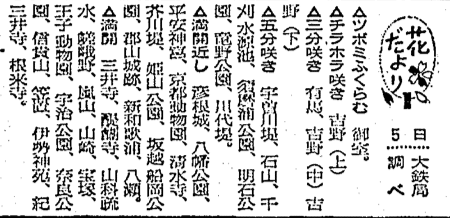 花だより
5日
大鉄局調べ
▲ツボミふくらむ 御室。
▲チラホラ咲き 吉野(上)
▲三分咲き 有馬、吉野(中)吉
野(下)
▲五分咲き 宇曽川堤、石山、千
刈水源池、須磨浦公園、明石公
園、竜野公園、川代堤。
▲満開近し 彦根城、八幡公園、
平安神宮、京都動物園、清水寺、
芥川堤、姫山公園、坂越船岡公
園、郡山城跡、新和歌浦、八瀬。
▲満開 三井寺、醍醐寺、山科疏
水、嵯峨野、嵐山、山崎、宝塚、
王子動物園、宇治公園、奈良公
園、信貴山、笠置、伊勢神苑、紀
三井寺、根来寺。